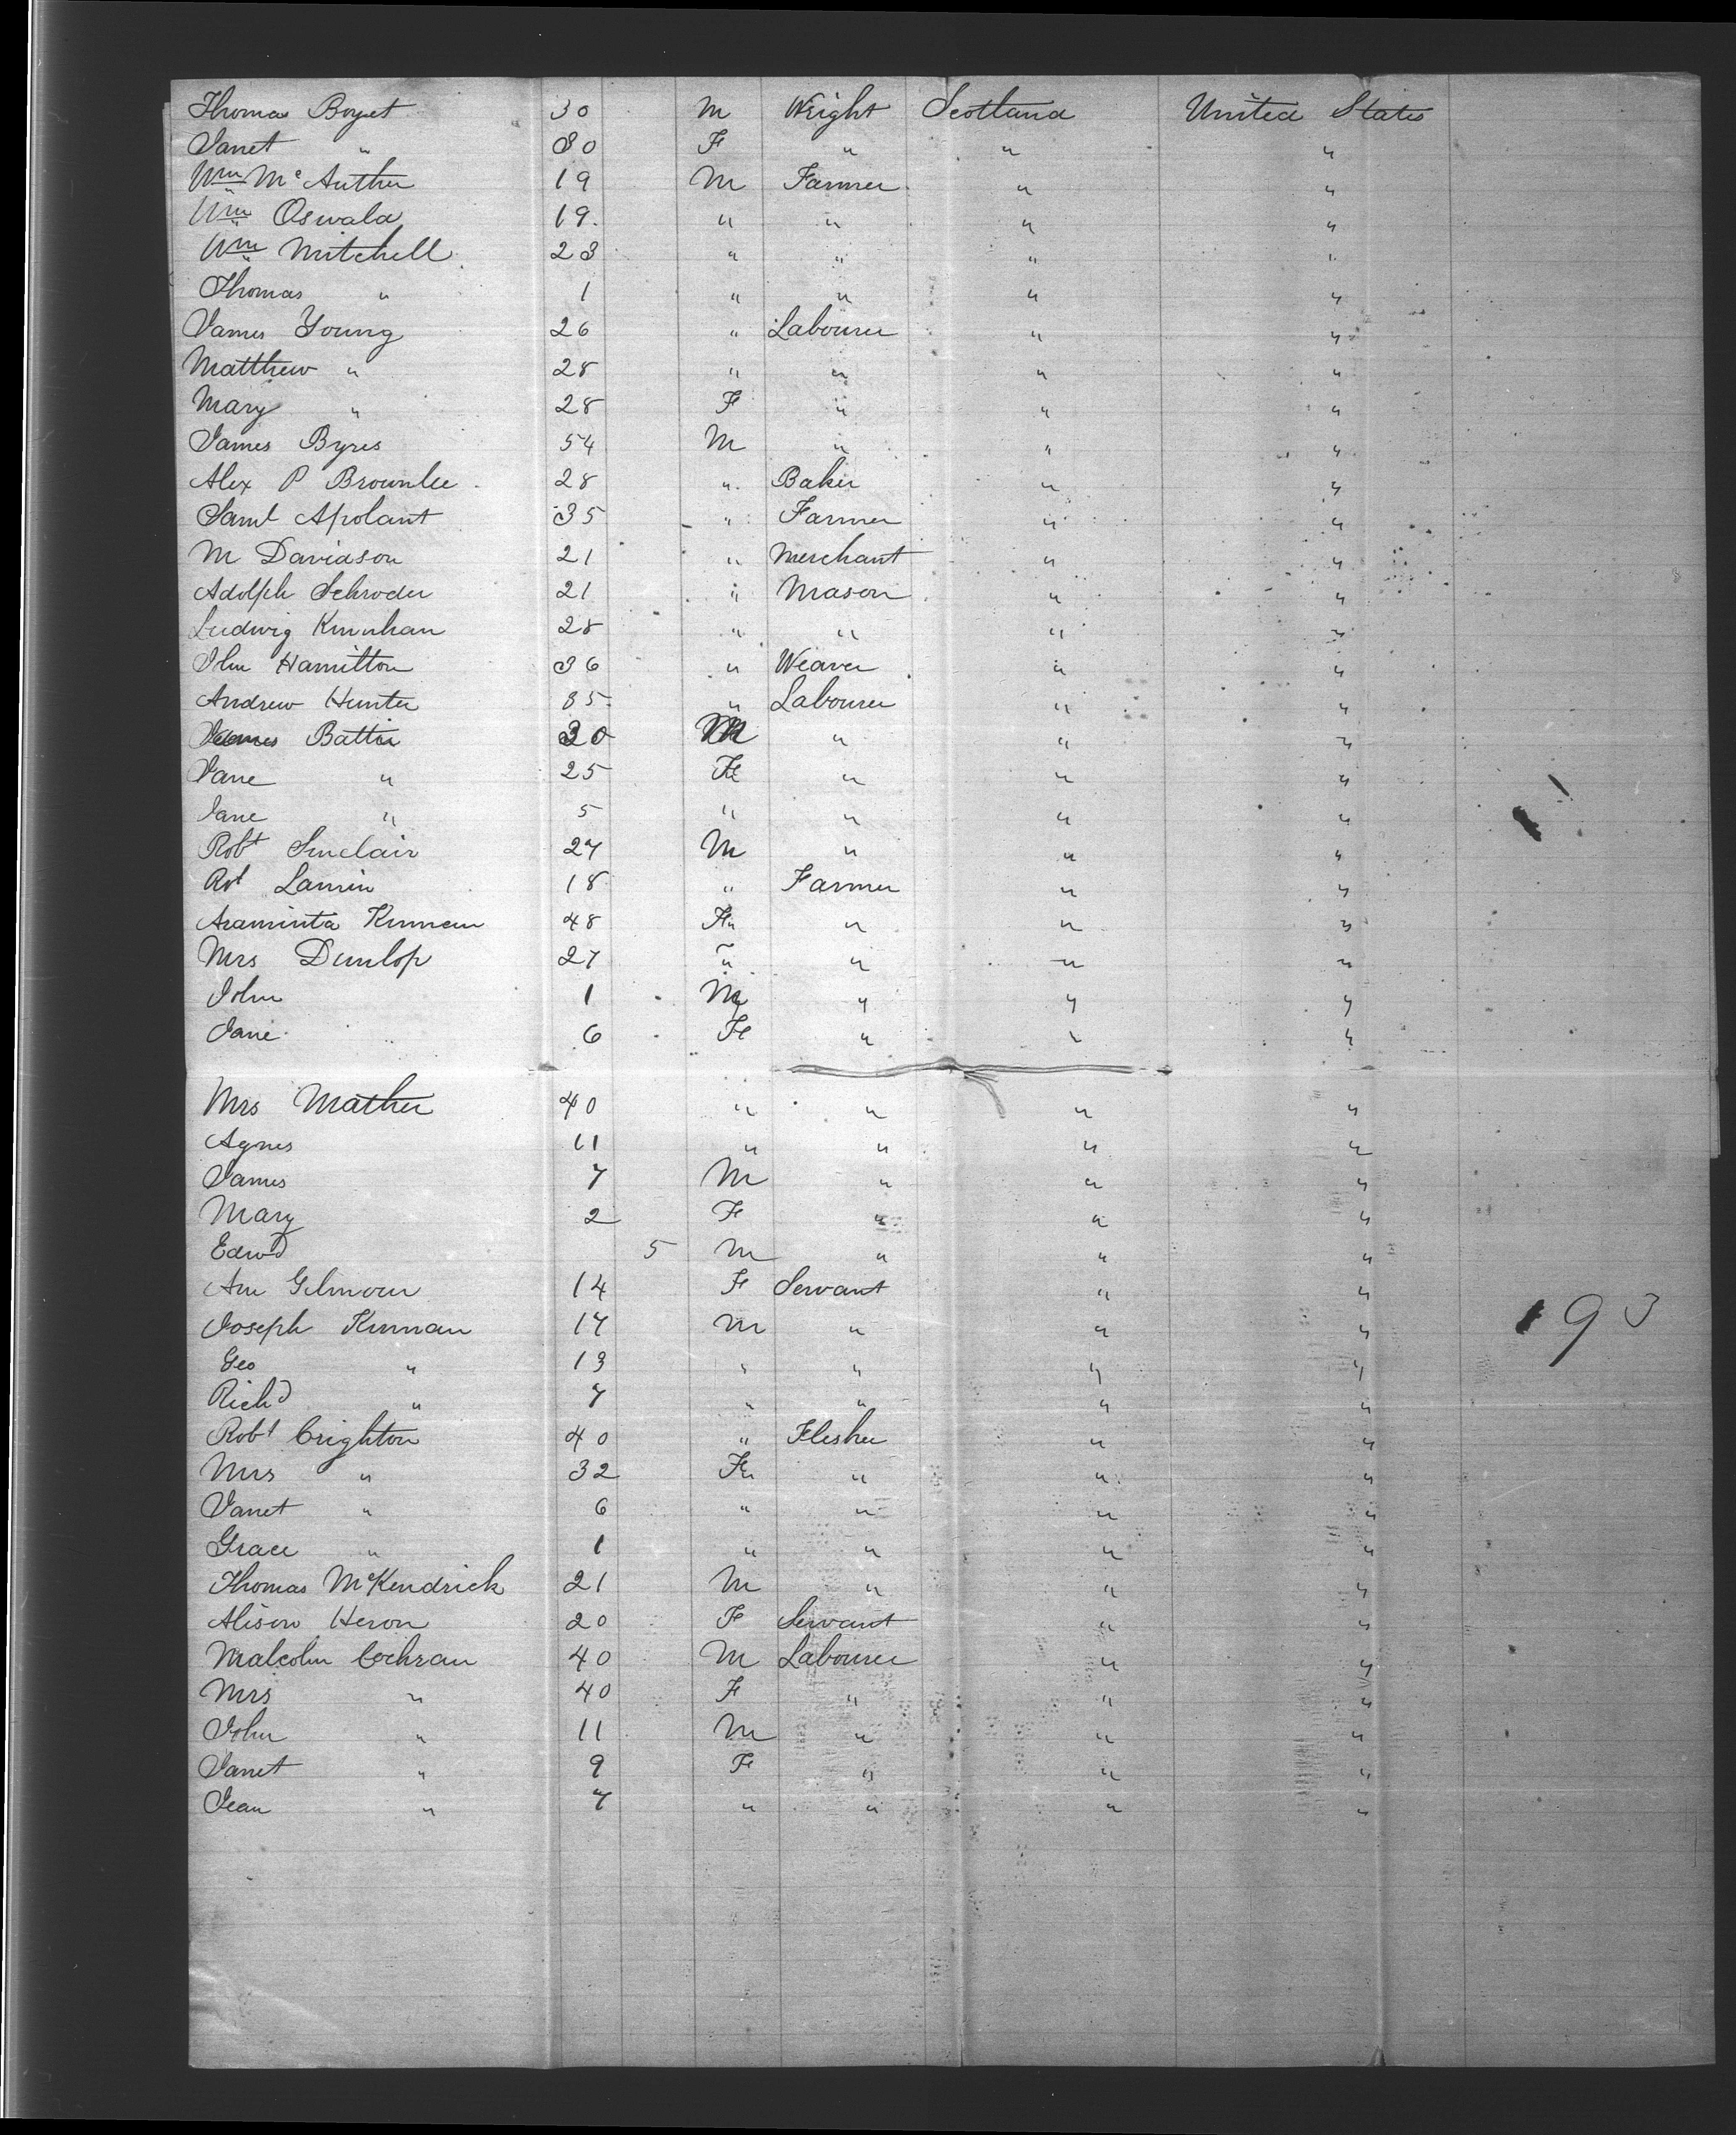 Thomas Boyet 30 M Wright Scotland United States
Janet " 30 F " " "
Wm McAuther 19 M Farmer " "
Wm Oswald 19. " " " "
Wm Mitchell 23 " " " "
Thomas " 1 " " " "
James Young 26 " Labourer " "
Matthew " 28 " " " "
Mary " 28 F " " "
James Byres 54 M " " "
Alex P Brownlee 28 " Baker " "
Saml Apolant 35 " Farmer " "
M Davidson 21 " Merchant " "
Adolph Schroder 21 " Mason " "
Ludwig 28 " " " "
Jhn Hamilton 36 " Weaver " "
Andrew Hunter 35 " Labourer " "
James Battie 30 M " " "
Jane " 25 Fe " " "
Jane " 5 " " " "
Robt Sinclair 27 M " " "
Rot 18 " Farmer " "
Araminta 48 F " " "
Mrs Dunlop 27 " " " "
John 1 M " " "
Jane 6 Fe " " "
Mrs Mather 40 " " " "
Agnes 11 " " " "
James 7 M " " "
Mary 2 F " " "
Edwd 5 M " " "
Ann Gilmour 14 F Servant " "
Joseph Kinnan 17 M " " "
Geo " 13 " " " "
Richd " 7 " " " "
Robt Crighton 40 " Flesher " "
Mrs " 32 F " " "
Janet " 6 " " " "
Grace " 1 " " " "
Thomas McKendrick 21 M " " "
Alison Heron 20 F Servant " "
Malcolm Cochran 40 M Labourer " "
Mrs " 40 F " " "
John " 11 M " " "
Janet " 9 F " " "
Jean " 7 " " " "
193